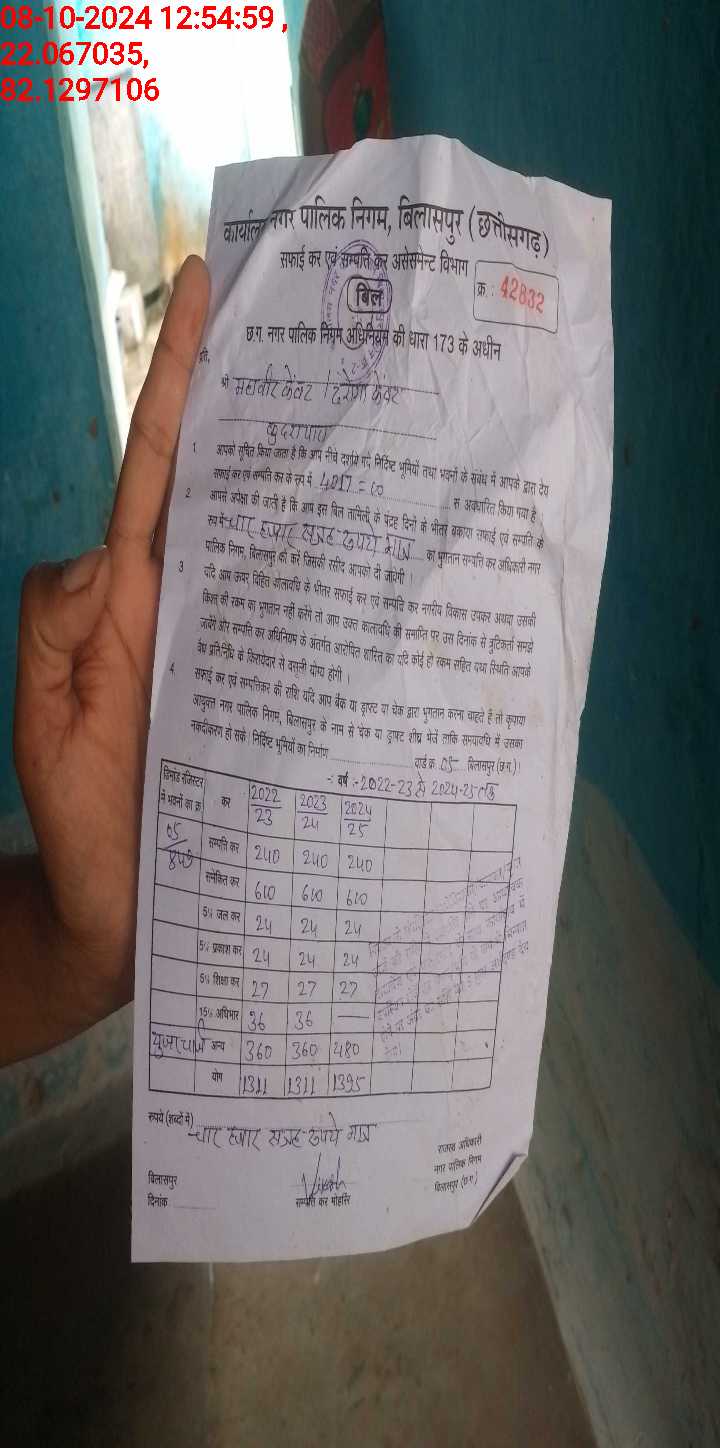 08-10-2024 12:54:59 ,
22.067035,
82.1297106
कार्यालय नगर पालिक निगम, बिलासपुर (छत्तीसगढ़)
सफाई कर एवं सम्पत्ति कर असेसमेन्ट विभाग
बिल
क्र. : 42832
छ.ग. नगर पालिक निगम अधिनियम की धारा 173 के अधीन
प्रति,
श्री महावीर केंवट /
कुदरापारा
1 आपको सूचित किया जाता है कि आप नीचे दर्शाये गये निर्दिष्ट भूमियों तथा भवनों के संबंध में आपके द्वारा देय
सफाई कर एवं सम्पत्ति कर के रूप में 4017 = 00 स अवधारित किया गया है
2 आपसे अपेक्षा की जाती है कि आप इस बिल तामिली के पंद्रह दिनों के भीतर बकाया सफाई एवं सम्पति कर
रूप में चार हजार सत्रह रूपये मात्र का भुगतान सम्पत्ति कर अधिकारी नगर
पालिक निगम, बिलासपुर को करें जिसकी रसीद आपको दी जायेगी ।
3 यदि आप ऊपर विहित कालावधि के भीतर सफाई कर एवं सम्पत्ति कर नगरीय विकास उपकर अथवा उसकी
किश्त की रकम का भुगतान नहीं करेंगे तो आप उक्त कालावधि की समाप्ति पर उस दिनांक से त्रुटिकर्ता समझे
जावेंगे और सम्पत्ति कर अधिनियम के अंतर्गत आरोपित शास्ति का यदि कोई हो रकम सहित यथा स्थिति आपके
वैध प्रतिनिधि के किरायेदार से वसूली योग्य होगी ।
4 सफाई कर एवं सम्पत्तिकर की राशि यदि आप बैंक या ड्राफ्ट या चेक द्वारा भुगतान करना चाहते हैं तो कृपया
आयुक्त नगर पालिक निगम, बिलासपुर के नाम से चेक या ड्राफ्ट शीघ्र भेजें ताकि समयावधि में उसका
नकदीकरण हो सके। निर्दिष्ट भूमियों का निर्माण
वार्ड क्र. 05 बिलासपुर (छ.ग.)।
-: वर्ष :- 2022-23 से 2024-25 तक
डिमांड रजिस्टर में भवनों का क्र कर 2022/23 2023/24 2024/25
05/849 सम्पति कर 240 240 240
समेकित कर 610 610 610
5% जल कर 24 24 24
5% प्रकाश कर 24 24 24
5% शिक्षा कर 27 27 27
15% अधिभार 36 36 —
यूजर चार्ज अन्य 360 360 480
योग 1311 1311 1395
रूपये (शब्दों में) चार हजार सत्रह रूपये मात्र
बिलासपुर
दिनांक
सम्पत्ति कर मोहर्रिर
राजस्व अधिकारी
नगर पालिक निगम
बिलासपुर (छ.ग.)